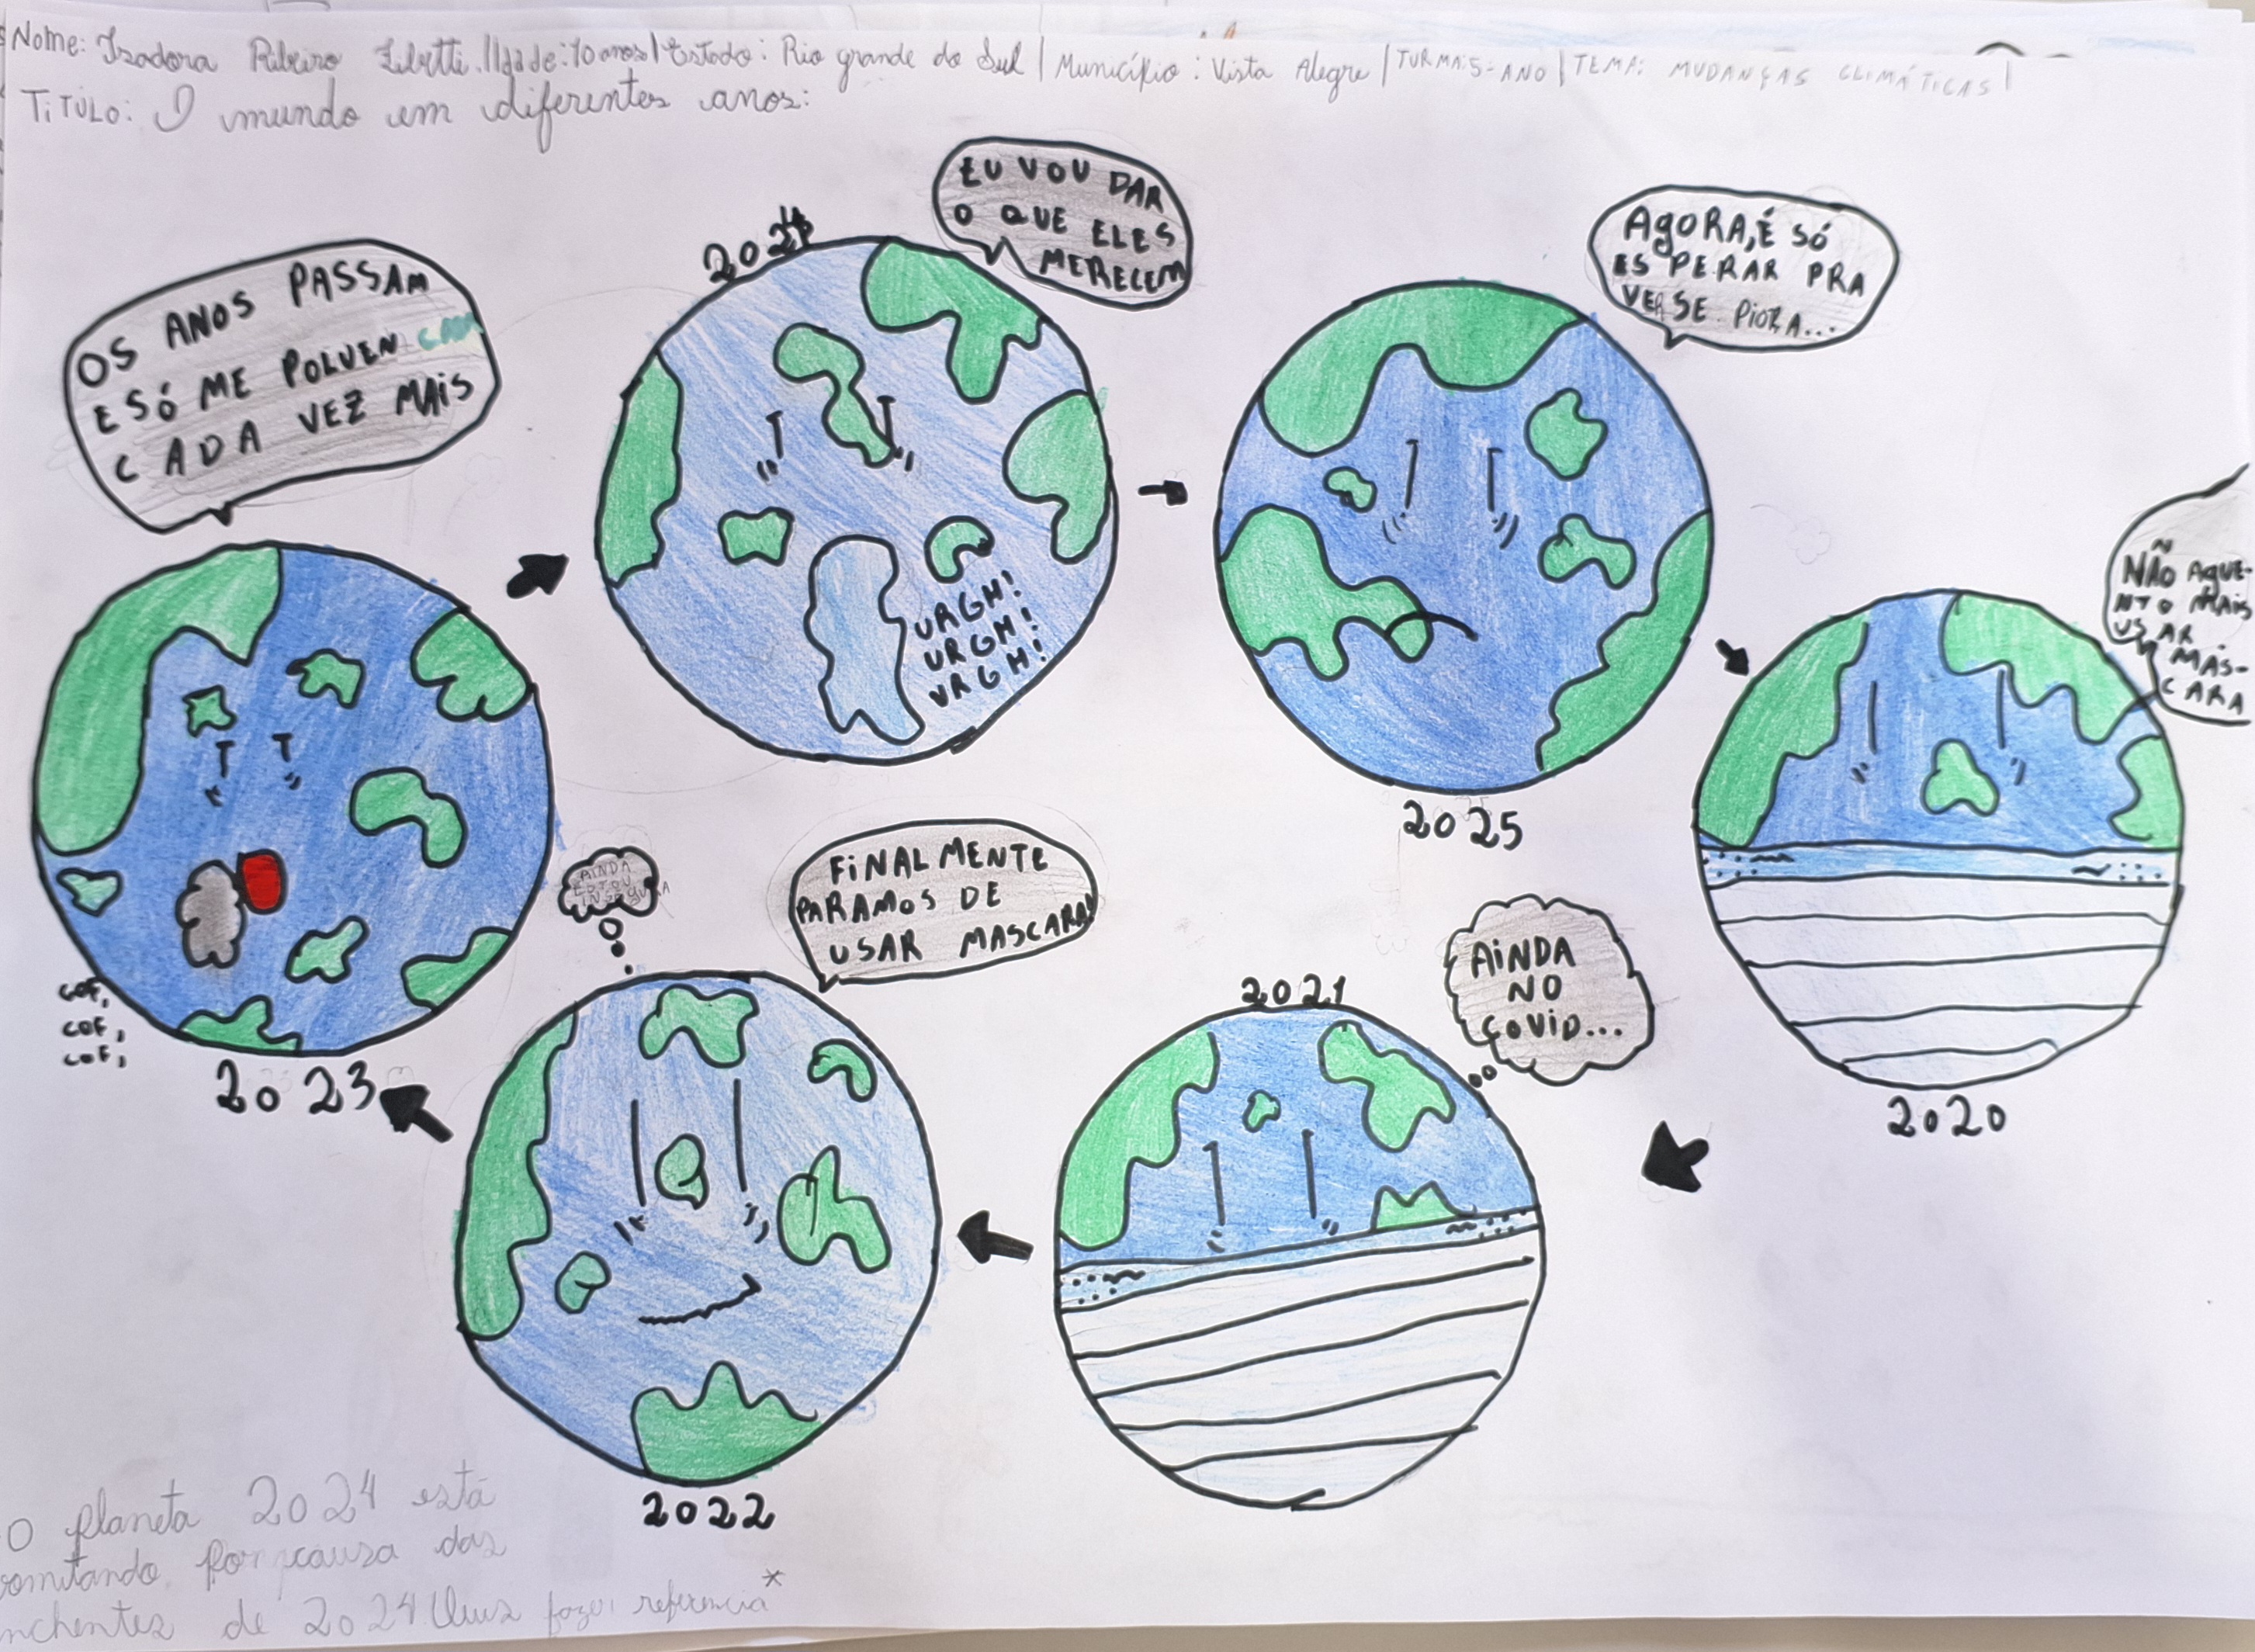 Nome: Isadora Ribeiro | Idade: 10 anos | Estado: Rio grande do Sul | Município: Vista Alegre | TURMA: 5-ANO | TEMA: MUDANÇAS CLIMÁTICAS |
TiTÚLO: O mundo em diferentes anos:
EU VOU DAR
O QUE ELES
MERECEM
2024
AgORA, É SÓ
ESPERAR PRA
VER SE PiORA...
OS ANOS PASSAM
E SÓ ME POLUEN
CADA VEZ MAiS
URGH!
URGH!
URGH!
2025
NÃO AGUE-
NTO MAiS
USAR
MÁS-
CARA
2020
FiNALMENTE
PARAMOS DE
USAR MASCARA!
AiNDA
ESTOU
INSEGURA
AiNDA
NO
COViD...
2021
COF,
COF,
COF,
2023
2022
O planeta 2024 está
vomitando por causa das
enchentes de 2024 fazer referencia*